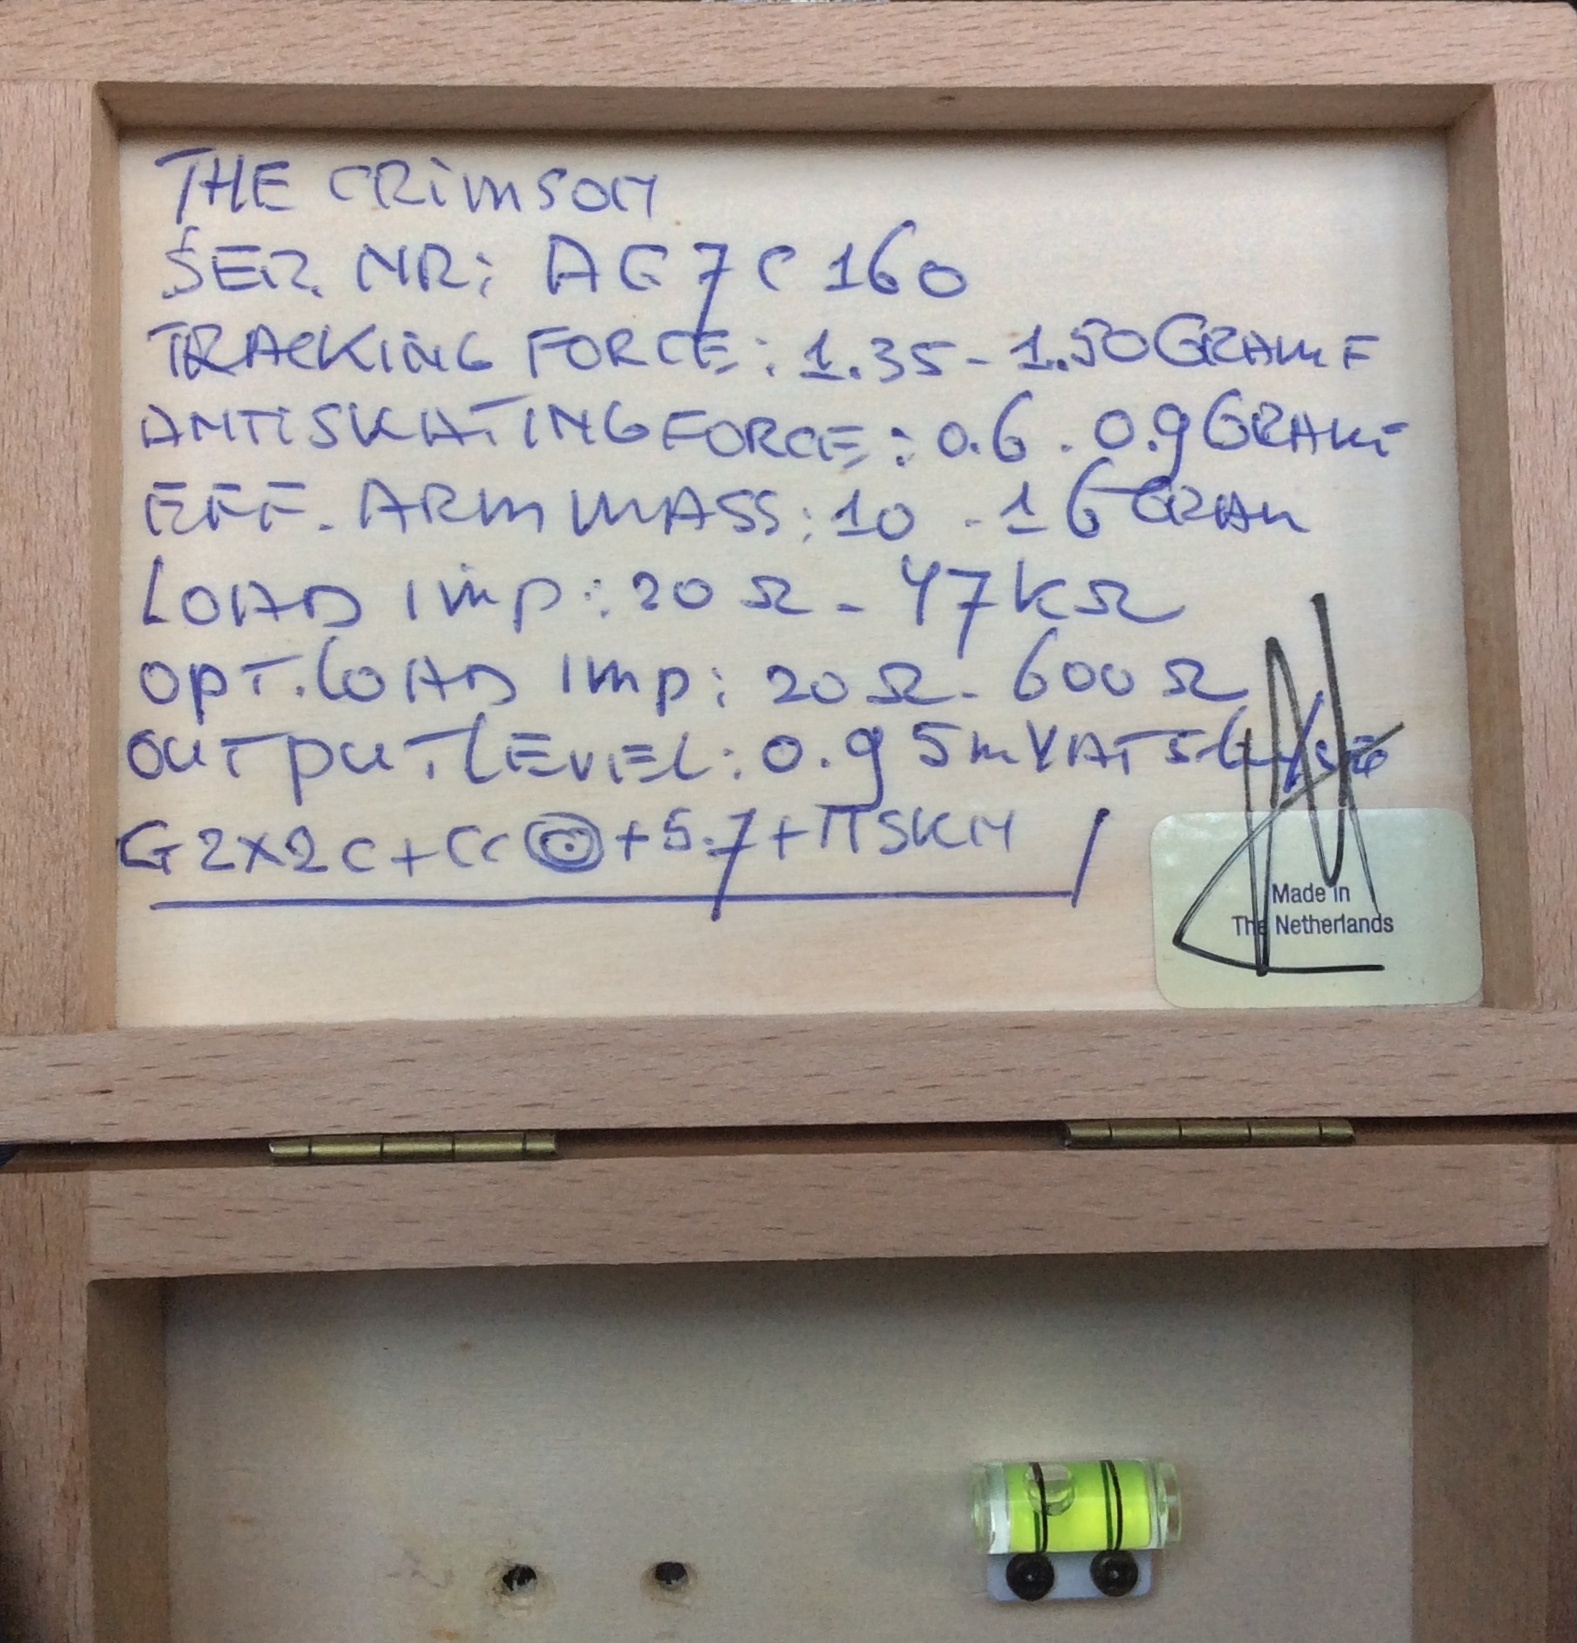 THE CRiMSON
SER. NR: AG7C160
TRACKING FORCE: 1.35 - 1.50 GRAM F
ANTISKATING FORCE: 0.6 - 0.9 GRAM F
EFF. ARM MASS: 10 - 16 GRAM
LOAD IMP: 20 Ω - 47 KΩ
OPT. LOAD IMP: 20 Ω - 600 Ω
OUTPUT LEVEL: 0.95 mV AT 5
G2X2C+CC +5.7+
Made in
The Netherlands